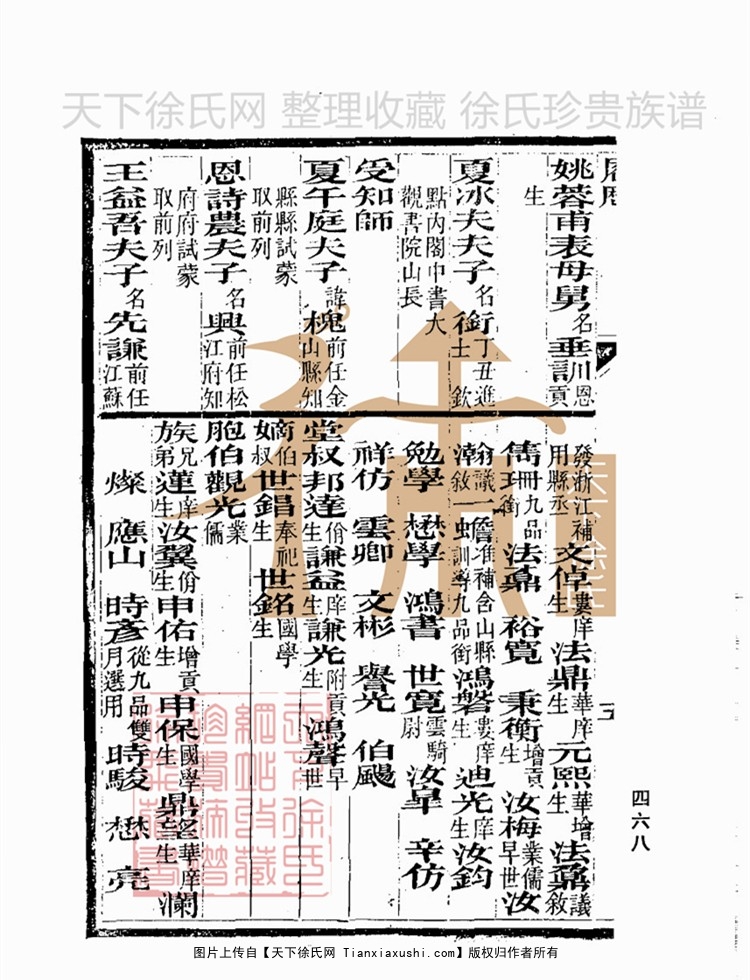 天下徐氏网 整理收藏 徐氏珍贵族谱
姚蓉甫表母舅名垂訓恩貢
生
夏冰夫夫子名銜丁丑進士欽
點內閣中書大
觀書院山長
受知師
夏午庭夫子諱槐前任金山縣知
縣縣試蒙
取前列
恩詩農夫子名興前任松江府知
府府試蒙
取前列
王益吾夫子名先謙前任江蘇
發浙江補用縣丞文倬婁庠生法鼎華庠生元熙華增生法鼐議敘
儁珊九品銜法鼐裕寬秉衡增貢生汝梅業儒早世汝
翰議敘瀚一蟾准補含山縣訓導九品銜鴻磐婁庠生迪光庠生汝鈞
勉學懋學鴻書世寬雲騎尉汝皐辛仿
祥仿雲卿文彬譽光伯颺
堂叔邦達佾生謙益庠生謙光附貢生鴻聲早世
嫡伯叔世錩奉祀生世銘國學生
胞伯觀光業儒
族兄弟蓮庠生汝翼佾生申佑增貢生申保國學生鼎望華庠生瀾
燦應山時彥從九品雙月選用時駿懋亮
四六八
图片上传自【天下徐氏网 Tianxiaxushi.com】版权归作者所有